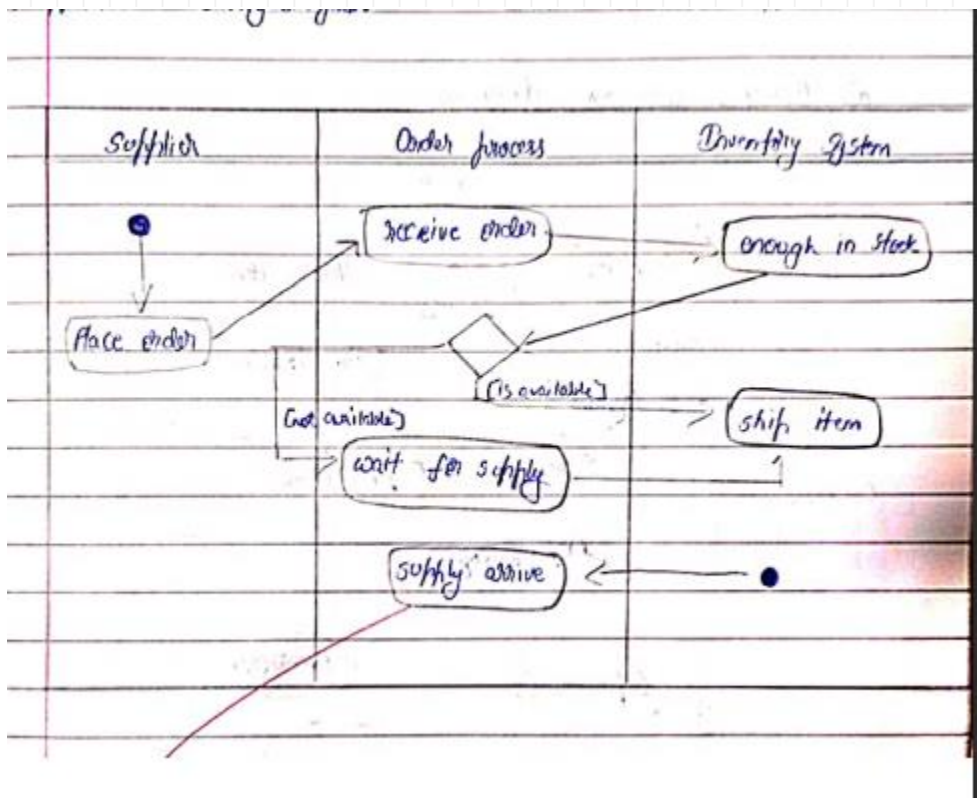 Supplier
Order process
Inventory System
receive order
enough in stock
Place order
[is available]
[not available]
ship item
wait for supply
supply arrive